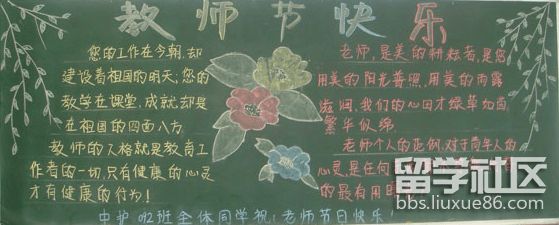 教师节快乐
您的工作在今朝,却
建设着祖国的明天;您的
教学在课堂,成就却是
在祖国的四面八方.
教师的人格就是教育工
作者的一切,只有健康的心灵
才有健康的行为!
老师,是美的耕耘者,是您
用美的阳光普照,用美的雨露
滋润,我们的心田才绿草如茵
繁华似锦.
老师个人的范例,对于青年人的
心灵,是任何
的最有用阳
中护092班全体同学祝:老师节日快乐!
留学社区
bbs.liuxue86.com